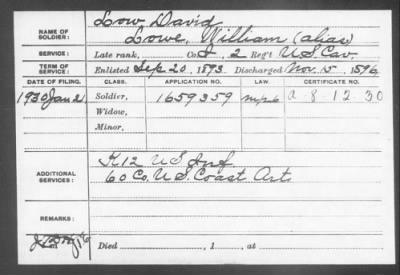 Low David
NAME OF SOLDIER: Lowe, William (alias)
SERVICE: Late rank, Co. I, 2 Reg't U.S. Cav.
TERM OF SERVICE: Enlisted Sep 20, 1893 Discharged Nov. 15, 1896
DATE OF FILING. CLASS. APPLICATION NO. LAW. CERTIFICATE NO.
1930 Jan 2 Soldier, 1659359 a-8-12-30
Widow,
Minor,
ADDITIONAL SERVICES: K 12 U S Inf
60 Co. U.S. Coast Art.
REMARKS:
Died , 1 , at